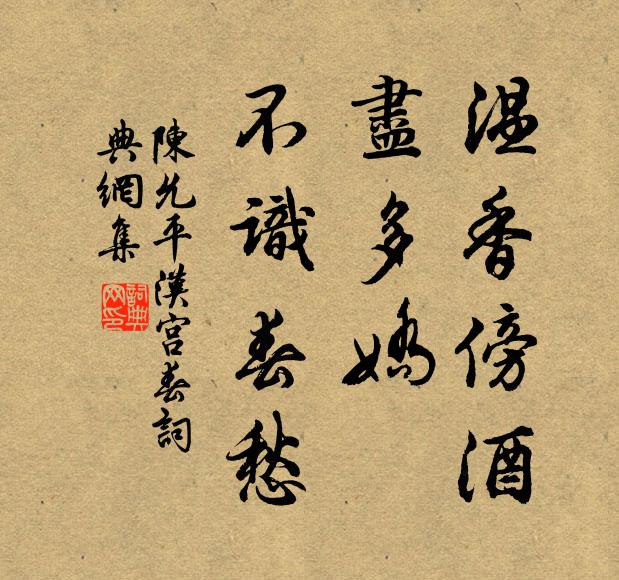 温香傍酒
盡多嬌
不識春愁
陳允平漢宮春詞
典網集
詞典
网印